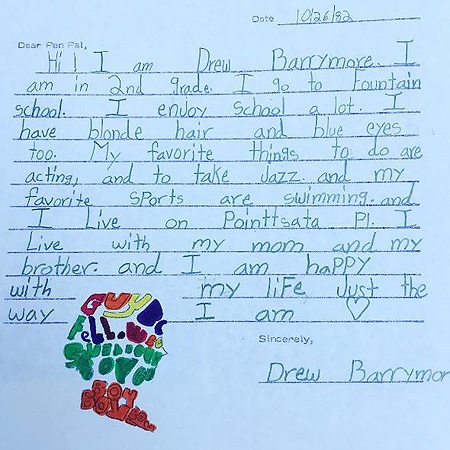 Date 10/26/82
Dear Pen Pal,
Hi! I am Drew Barrymore. I
am in 2nd grade. I go to Fountain
school. I enjoy school a lot. I
have blonde hair and blue eyes
too. My favorite things to do are
acting, and to take Jazz. and my
favorite sports are swimming. and.
I Live on Pointtsata Pl. I
Live with my mom and my
brother. and I am haPPY
with my liFe Just the
way I am ♡
Sincerely,
Drew Barrymor